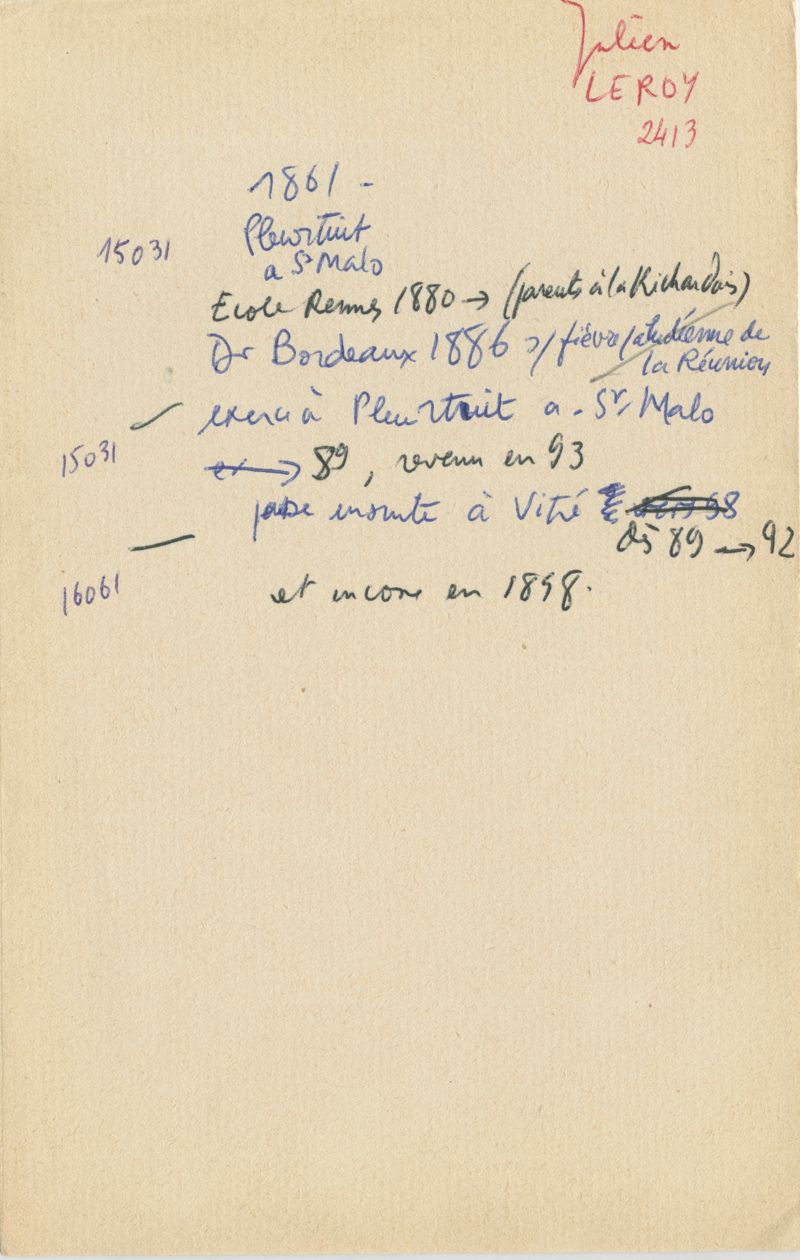 Julien
LEROY
2413
1861 -
15031 Pleurtuit
a St Malo
Ecole Rennes 1880 → (parents à la Richardais)
Dr Bordeaux 1886 fièvre de
la Réunion
exerce à Pleurtuit a. St Malo
15031 ex → 89, revenu en 93
passe ensuite à Vitré 98
dès 89 → 92
16061 et encore en 1898.